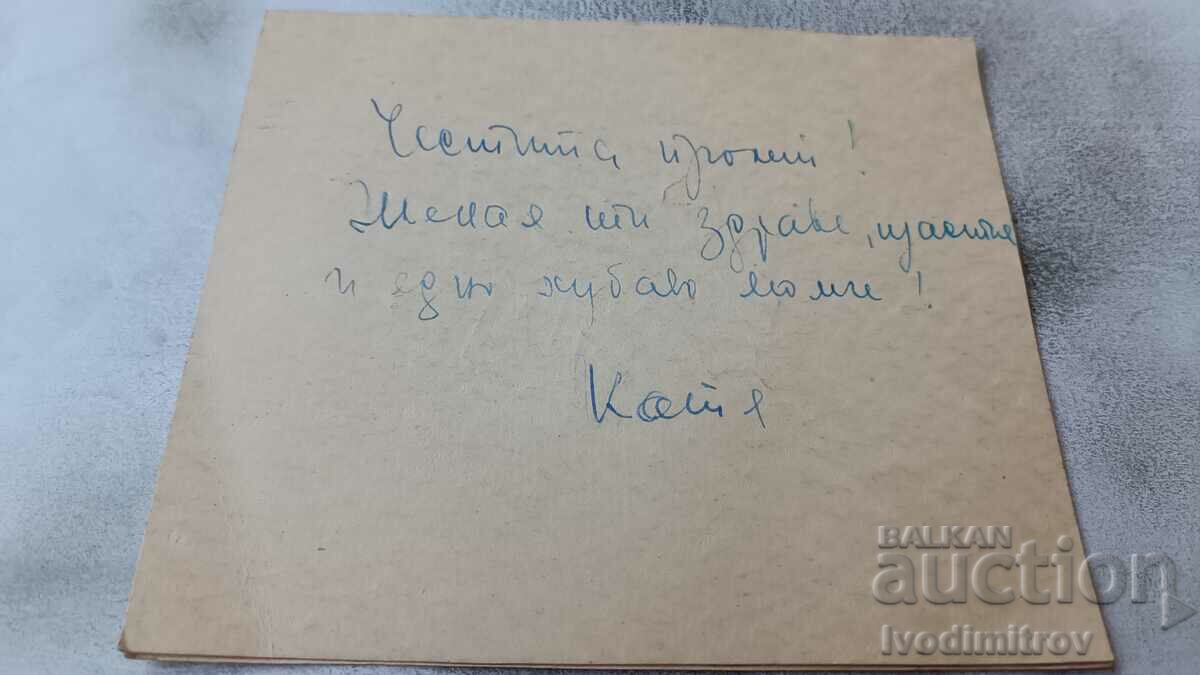 Честита пролет!
Желая ти здраве, щастие
и едно хубаво лято!
Катя
BALKAN
auction
Ivodimitrov